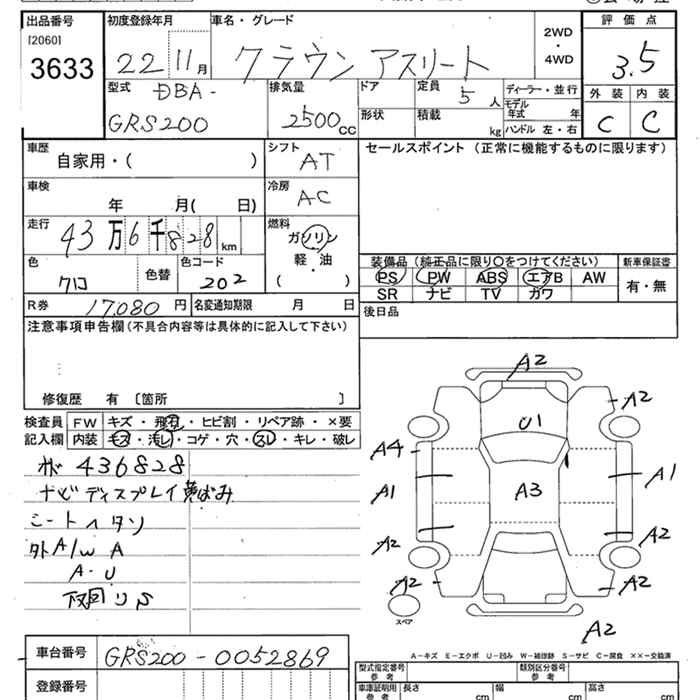 出品番号 初度登録年月 車名・グレード 2WD・4WD 評価点
[2060]
3633 22 11月 クラウン アスリート 3.5
型式 DBA- 排気量 ドア 定員 5人 ディーラー・並行 外装 内装
GRS200 2500cc 形状 積載 kg モデル年式 年 C C
ハンドル 左・右
車歴 シフト セールスポイント (正常に機能するものに限ります)
自家用・( ) AT
車検 冷房
年 月( 日) AC
走行 燃料
43万6千828km ガソリン
軽・油
( )
色 色替 色コード 装備品(純正品に限り○をつけてください) 新車保証書
クロ 202 PS PW ABS エアB AW 有・無
SR ナビ TV カワ
R券 17,080円 名変通知期限 月 日 後日品
注意事項申告欄(不具合内容等は具体的に記入して下さい)
修復歴 有 〔箇所 〕
検査員 FW キズ・飛石・ヒビ割・リペア跡・×要
記入欄 内装 キズ・汚レ・コゲ・穴・スレ・キレ・破レ
436828
ナビディスプレイ黄ばみ
シートヘタリ
外A/W A
A・U
下回りS
A2
A2
U1
A4
A1 A3 A1
A2 A2
A2 A2
スペア
A2
A-キズ E-エクボ U-凹み W-補修跡 S-サビ C-腐食 ××-交換済
車台番号 GRS200-0052869
型式指定番号 参考 類別区分番号 参考
登録番号 車庫証明用 参考 長さ cm 幅 cm 高さ cm